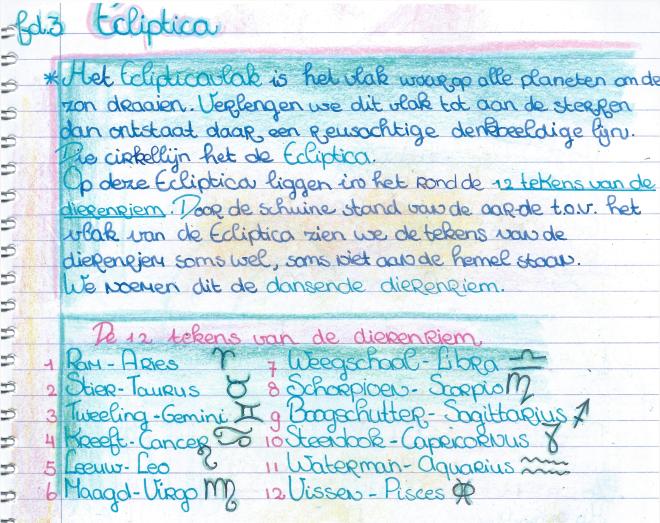 fd.3 Ecliptica
* Het Eclipticavlak is het vlak waarop alle planeten om de
zon draaien. Verlengen we dit vlak tot aan de sterren
dan ontstaat daar een reusachtige denkbeeldige lijn.
Die cirkellijn het de Ecliptica.
Op deze Ecliptica liggen in het rond de 12 tekens van de
dierenriem. Door de schuine stand van de aarde t.o.v. het
vlak van de Ecliptica zien we de tekens van de
dierenriem soms wel, soms niet aan de hemel staan.
We noemen dit de dansende dierenriem.
De 12 tekens van de dierenriem
1 Ram - Aries ♈
2 Stier - Taurus ♉
3 Tweeling - Gemini ♊
4 Kreeft - Cancer ♋
5 Leeuw - Leo ♌
6 Maagd - Virgo ♍
7 Weegschaal - Libra ♎
8 Schorpioen - Scorpio ♏
9 Boogschutter - Sagittarius ♐
10 Steenbok - Capricornus ♑
11 Waterman - Aquarius ♒
12 Vissen - Pisces ♓